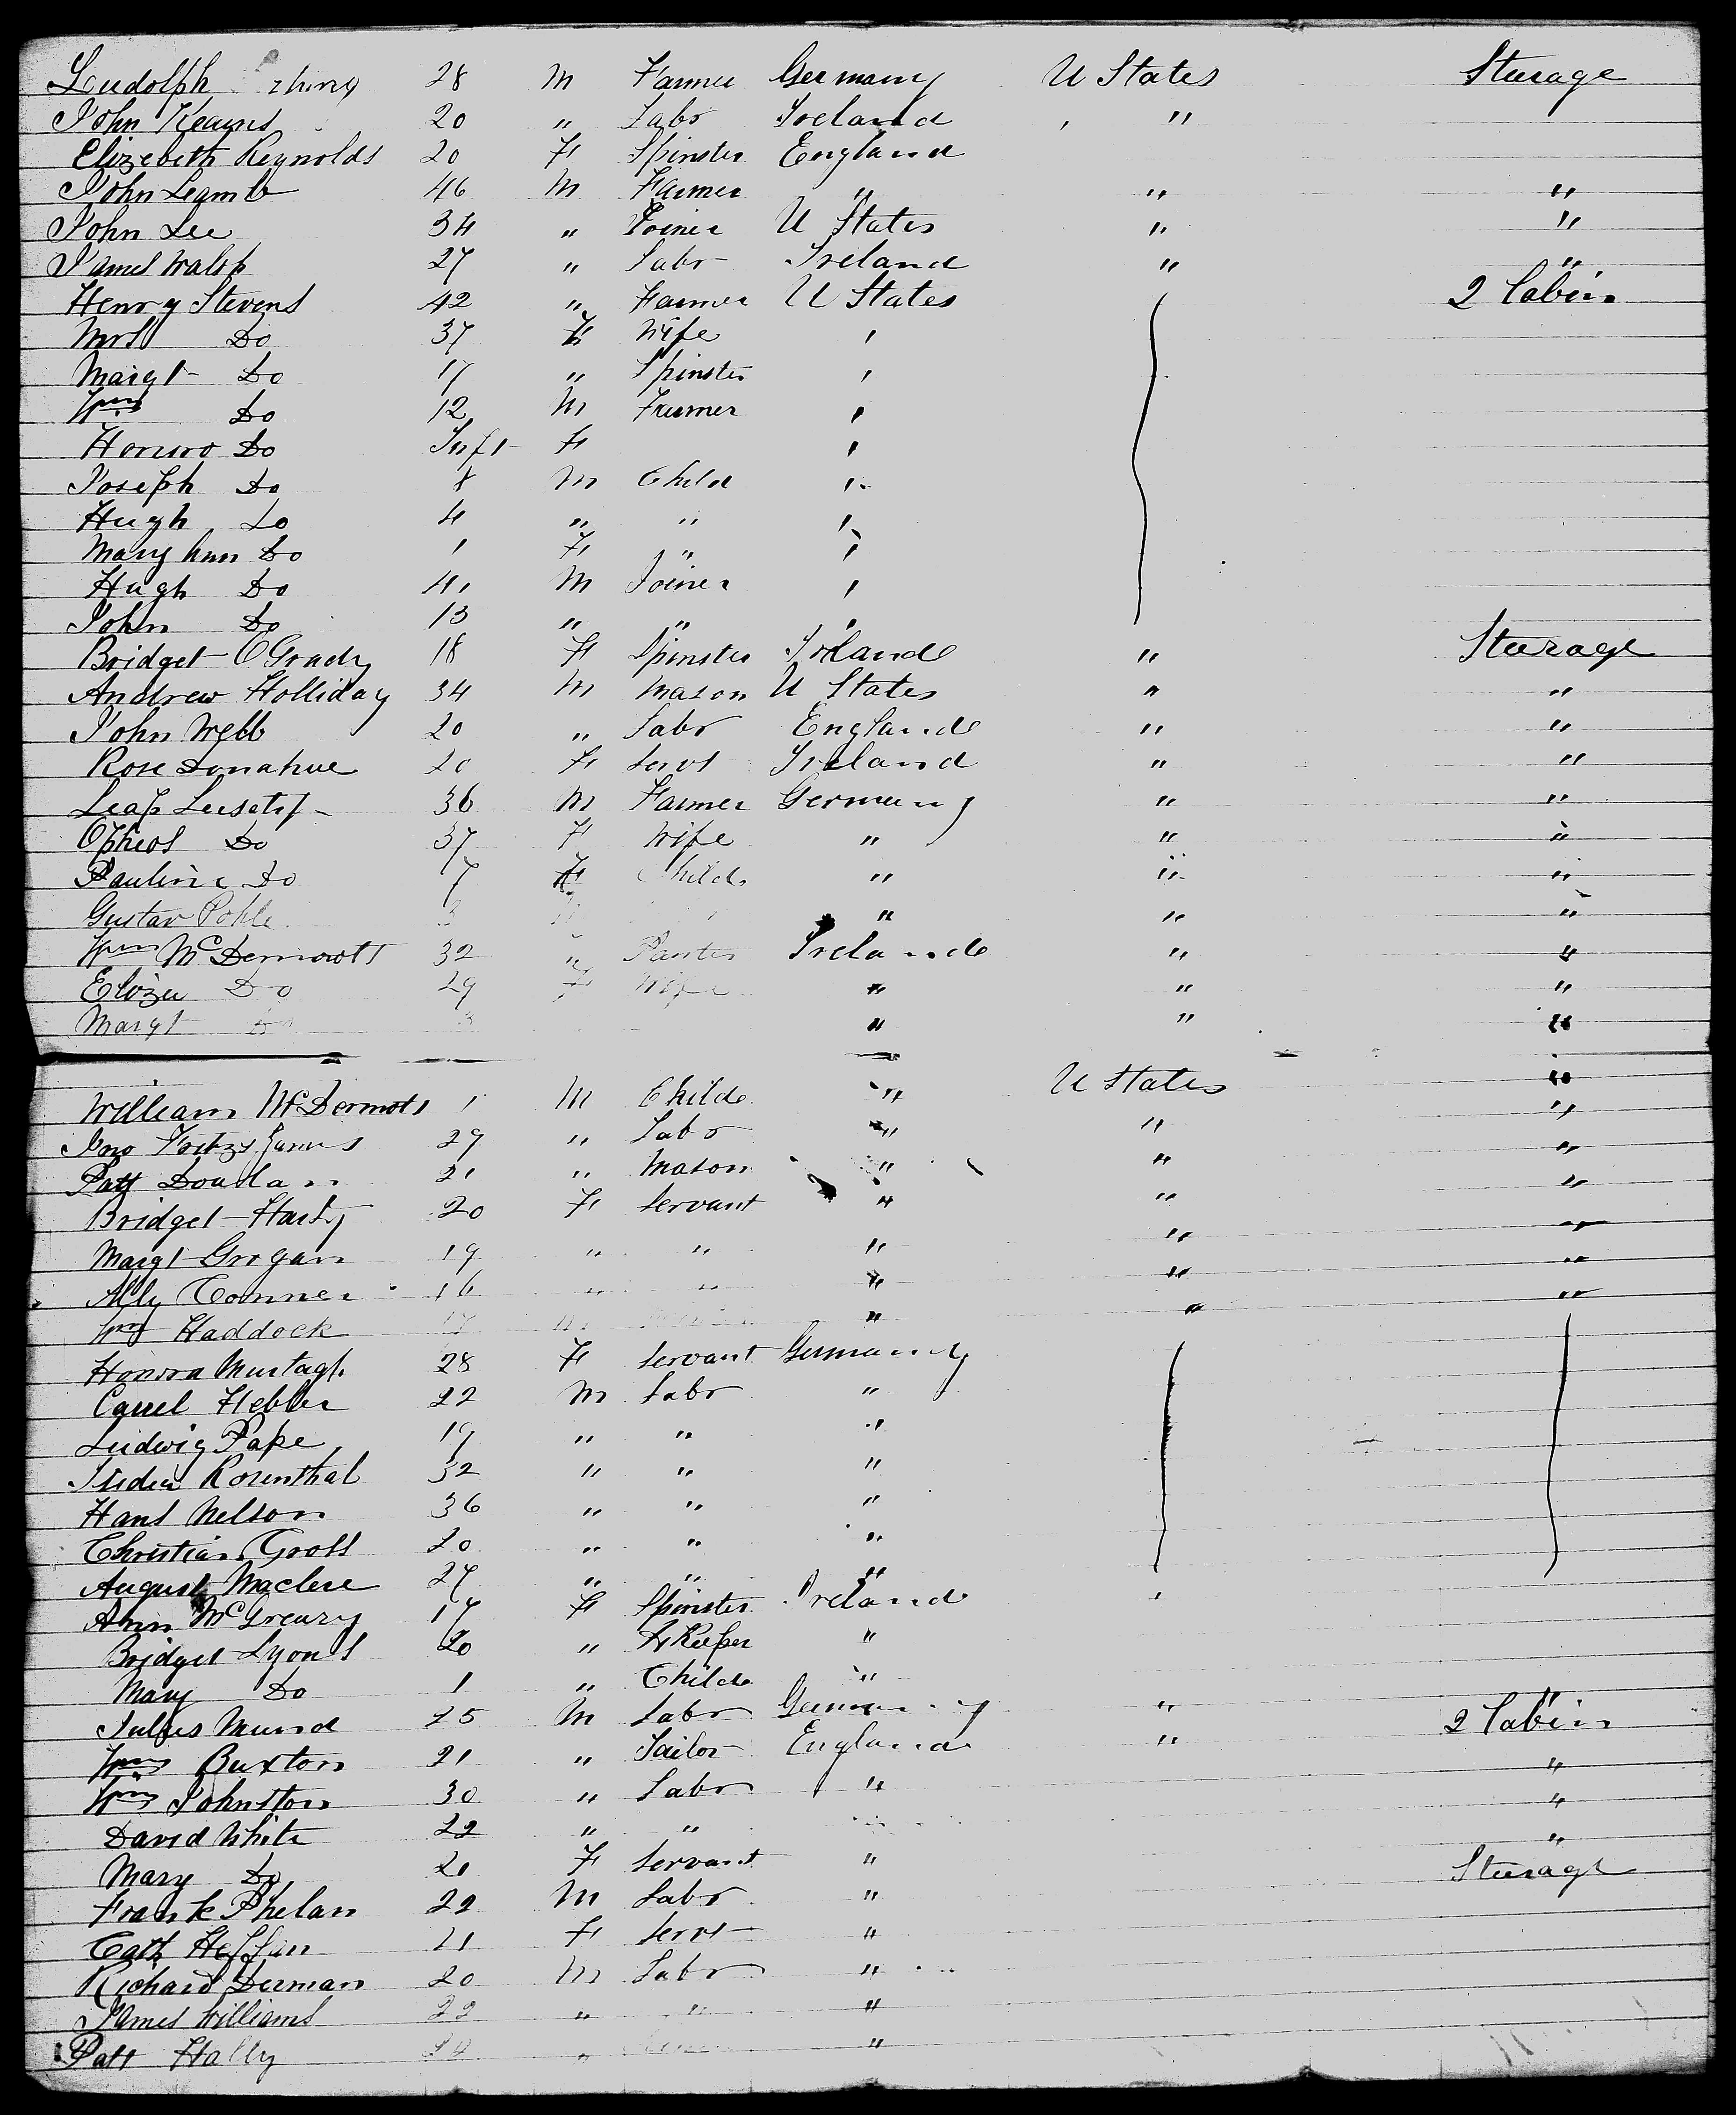 Ludolph 28 m Farmer Germany U States Sturage
John Keayns 20 " Labr Ireland " "
Elizebeth Reynolds 20 F Spinster England
John Leamb 46 m Farmer " " "
John Lee 34 " Joiner U States " "
James Walsh 27 " Labr Ireland " "
Henry Stevens 42 " Farmer U States 2 Cabin
Mrs Do 37 F Wife "
Margt Do 17 " Spinster "
Wm Do 12 m Farmer "
Honoro Do Inft F "
Joseph Do 8 m Child "
Hugh Do 4 " " "
Mary Ann Do 1 F " "
Hugh Do 41 m Joiner "
John Do 13 " " "
Bridget O Grady 18 F Spinster Irland " Steerage
Andrew Holliday 34 m Mason U States " "
John Webb 20 " Labr England " "
Rose Donahue 20 F Servt Ireland " "
Leap 36 m Farmer Germany " "
Opheos Do 37 F Wife " " "
Pauline Do 7 F Child " " "
Gustav Pohle 3 " " "
Wm McDermott 32 " Ireland " "
Eliza Do 29 F Wife " " "
Margt Do 3 " " "
William McDermots 1 m Child " U States "
Jno Fritzsjames 29 " Labr " " "
Patt Doulan 21 " Mason " " "
Bridget Harty 20 F Servant " " "
Margt Grogan 19 " " " " "
Ally Conner 16 " " " " "
Wm Haddock 17 m " " "
Honora Murtagh 28 F Servant Germany
Carrel Hebler 22 m Labr "
Ludwig Pape 19 " " "
Isidor Rosenthal 32 " " "
Hans Nelson 36 " " "
Christian Gross 20 " " "
August Maclere 27 " " "
Ann McGreary 17 F Spinster Ireland "
Bridget Lyons 20 " H Keeper "
Mary Do 1 " Child "
Julius Mund 25 m Labr Germany " 2 Cabin
Wm Buxton 21 " Tailor England " "
Wm Johnston 30 " Labr " "
David White 22 " " " "
Mary Do 21 F Servant " Sturage
Frank Phelan 22 m Labr "
Cath Heffan 21 F Servt "
Richard Derman 20 m Labr "
James Williams 22 " " "
Patt Hally 20 " "